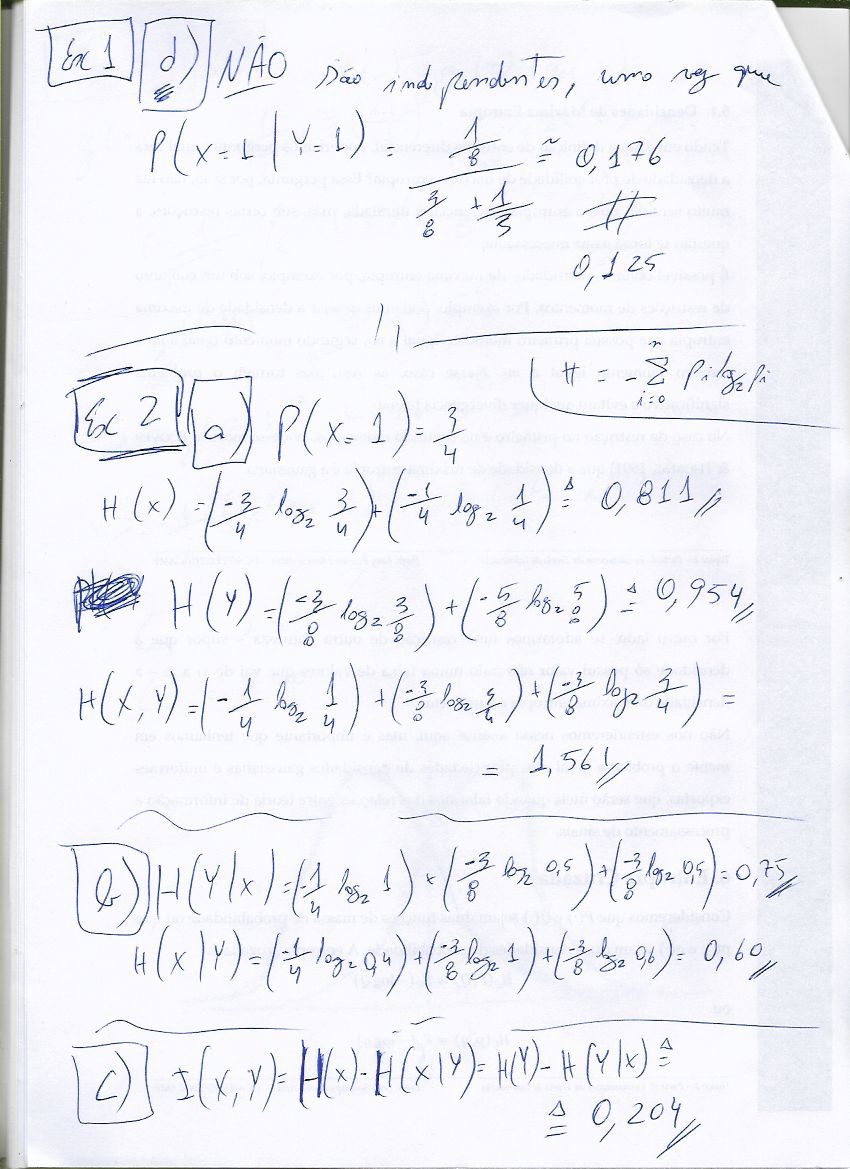 Ex 1 d) NÃO são independentes, uma vez que
P(X=1 | Y=1) = (1/8)/(3/8 + 1/3) ≅ 0,176
≠
0,125
H = -∑ᵢ₌₀ⁿ pᵢ log₂ pᵢ
Ex 2 a) P(X=1) = 3/4
H(X) = (-3/4 log₂ 3/4) + (-1/4 log₂ 1/4) ≙ 0,811 //
H(Y) = (-3/8 log₂ 3/8) + (-5/8 log₂ 5/8) ≙ 0,954 //
H(X,Y) = (-1/4 log₂ 1/4) + (-3/8 log₂ 3/4) + (-3/8 log₂ 3/4) =
= 1,561 //
b) H(Y|X) = (-1/4 log₂ 1) + (-3/8 log₂ 0,5) + (-3/8 log₂ 0,5) = 0,75 //
H(X|Y) = (-1/4 log₂ 0,4) + (-3/8 log₂ 1) + (-3/8 log₂ 0,6) = 0,60 //
c) I(X,Y) = H(X) - H(X|Y) = H(Y) - H(Y|X) ≙
≙ 0,204 //